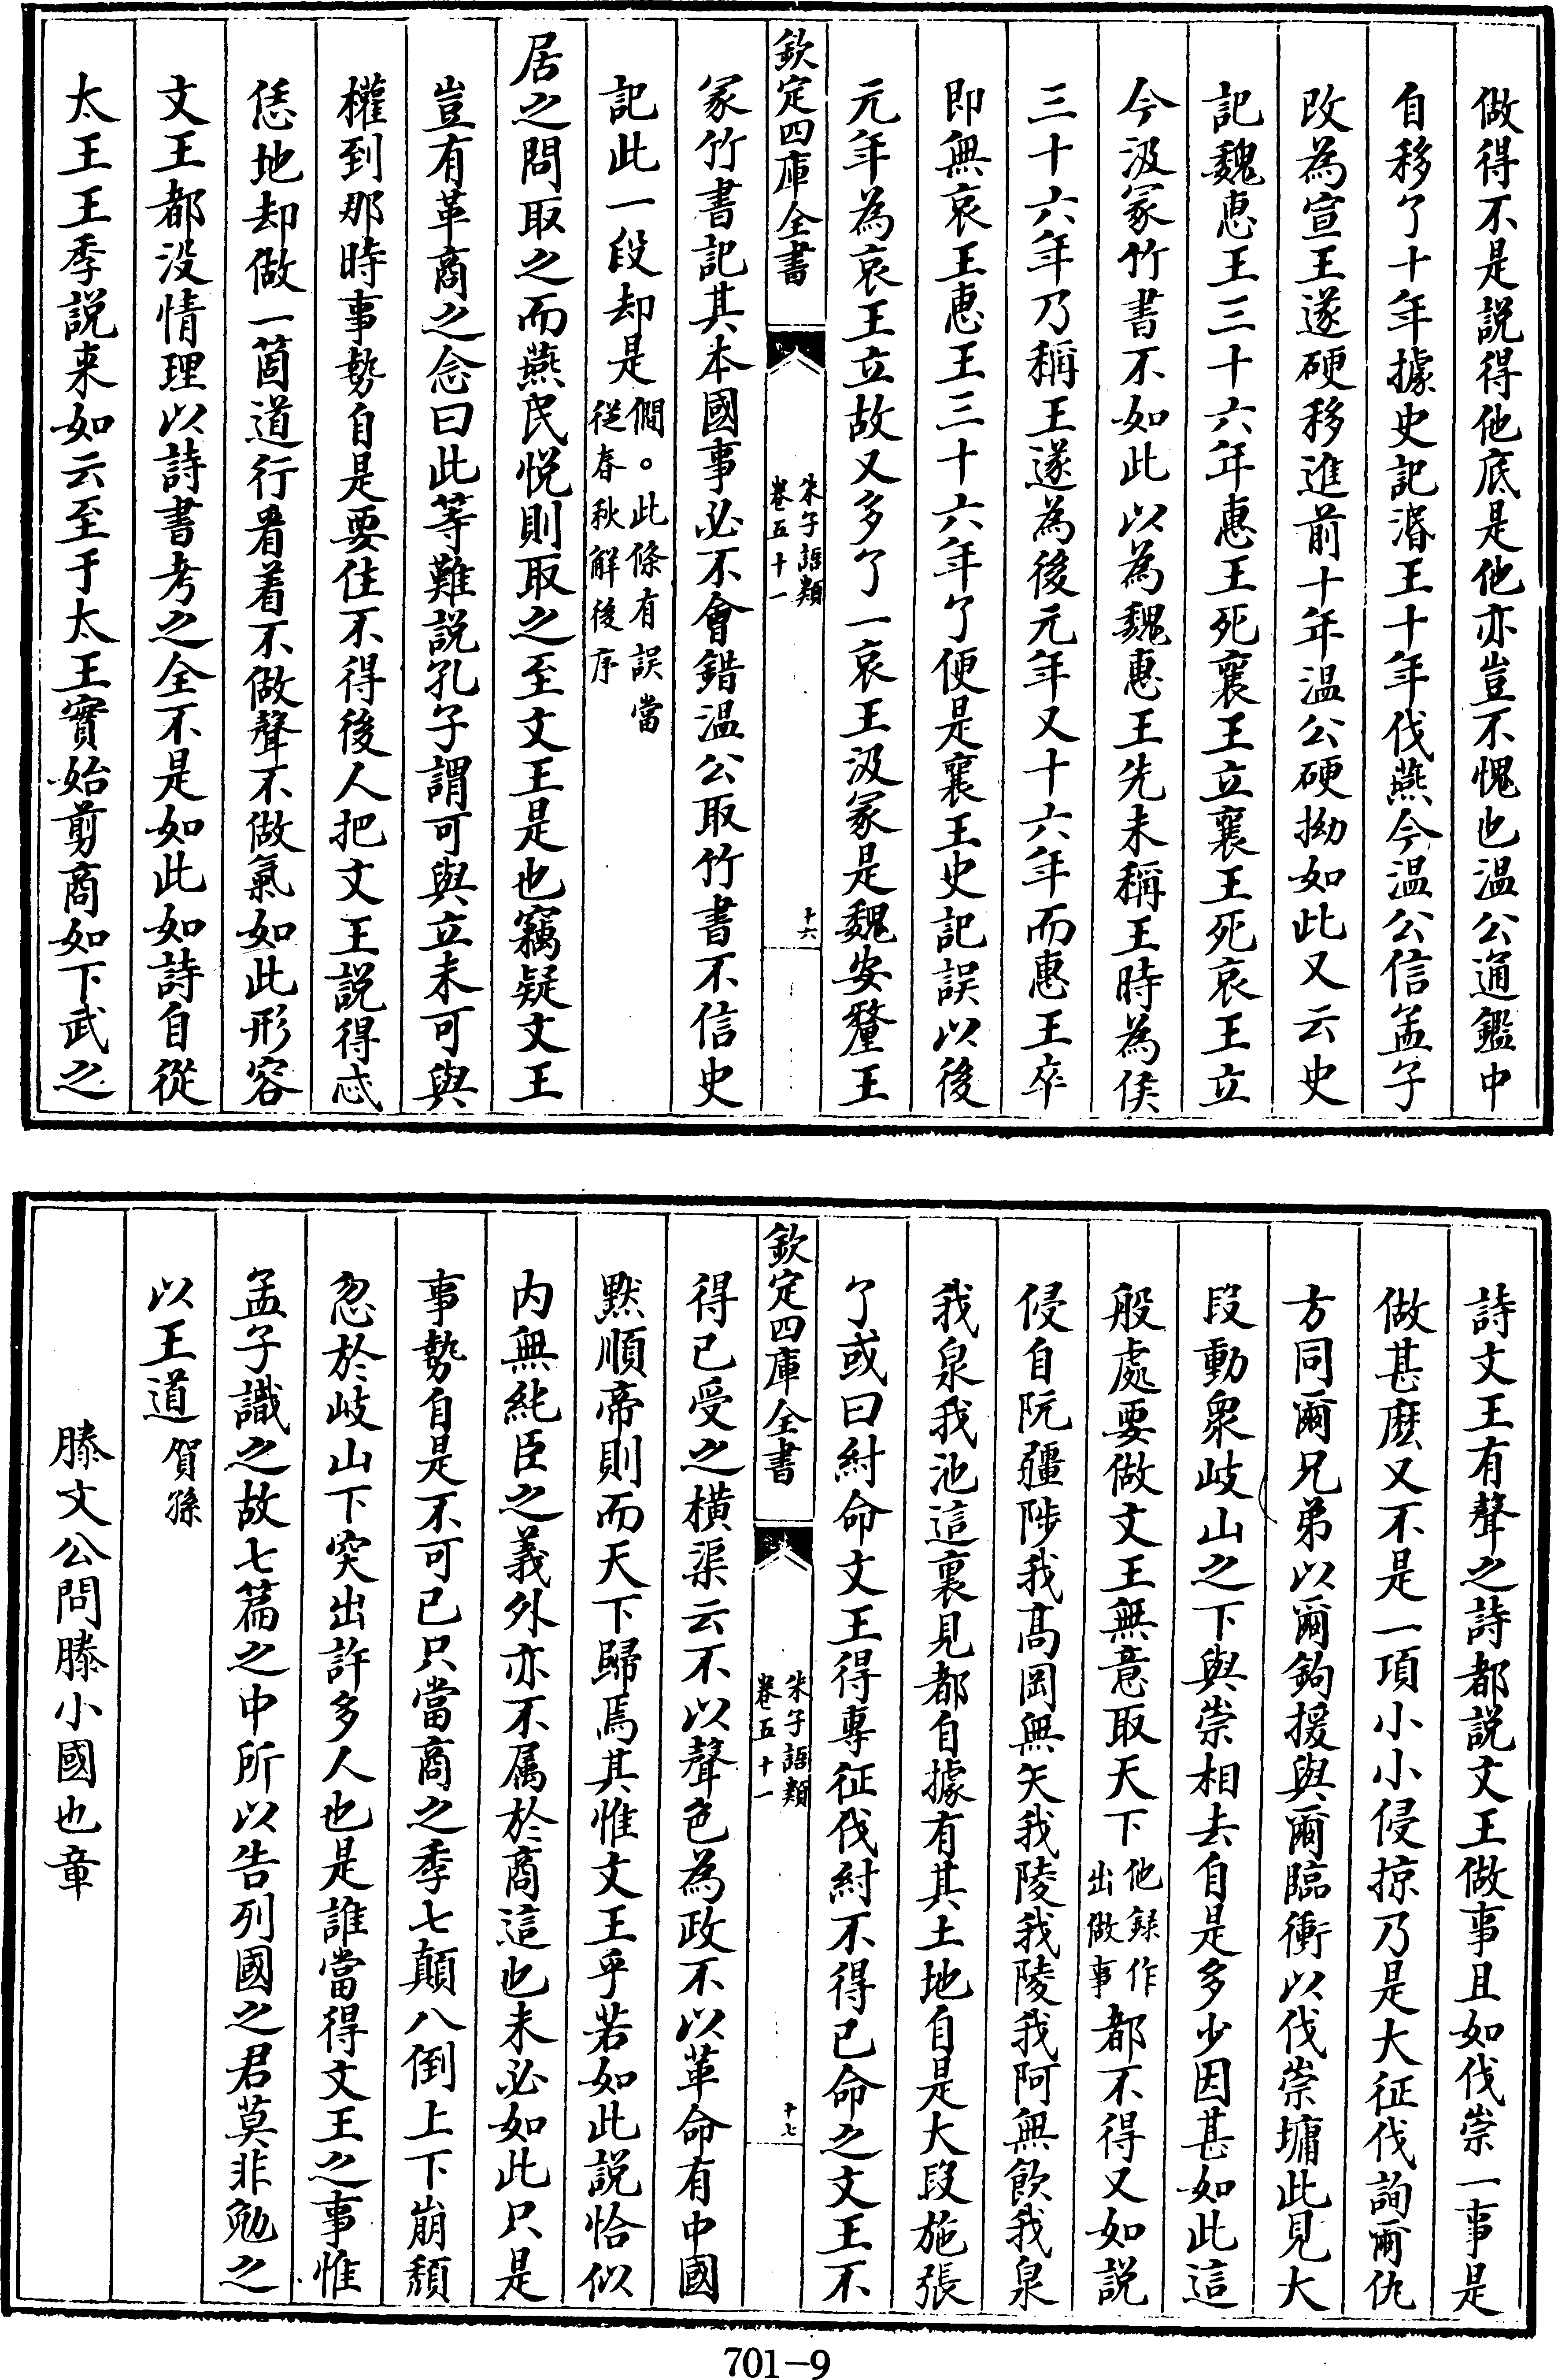 做得不是說得他底是他亦豈不愧也温公通鑑中
自移了十年據史記湣王十年伐燕今温公信孟子
改為宣王遂硬移進前十年温公硬拗如此又云史
記魏惠王三十六年惠王死襄王立襄王死哀王立
今汲冢竹書不如此以為魏惠王先未稱王時為侯
三十六年乃稱王遂為後元年又十六年而惠王卒
即無哀王惠王三十六年了便是襄王史記誤以後
元年為哀王立故又多了一哀王汲冢是魏安釐王
欽定四庫全書
朱子語類
卷五十一
十六
冢竹書記其本國事必不會錯温公取竹書不信史
記此一段却是
僩。此條有誤當
從春秋解後序
居之問取之而燕民悦則取之至文王是也竊疑文王
豈有革商之念曰此等難說孔子謂可與立未可與
權到那時事勢自是要住不得後人把文王說得忒
恁地却做一箇道行看着不做聲不做氣如此形容
文王都没情理以詩書考之全不是如此如詩自從
太王王季説来如云至于太王實始剪商如下武之
詩文王有聲之詩都説文王做事且如伐崇一事是
做甚麽又不是一項小小侵掠乃是大征伐詢爾仇
方同爾兄弟以爾鉤援與爾臨衝以伐崇墉此見大
段動衆岐山之下與崇相去自是多少因甚如此這
般處要做文王無意取天下
他録作
出做事
都不得又如説
侵自阮疆陟我髙岡無矢我陵我陵我阿無飲我泉
我泉我池這裏見都自據有其土地自是大段施張
了或曰紂命文王得專征伐紂不得已命之文王不
欽定四庫全書
朱子語類
卷五十一
十七
得已受之横渠云不以聲色為政不以革命有中國
黙順帝則而天下歸焉其惟文王乎若如此説恰似
内無純臣之義外亦不属於商這也未必如此只是
事勢自是不可已只當商之季七顛八倒上下崩頽
忽於岐山下突出許多人也是誰當得文王之事惟
孟子識之故七篇之中所以告列國之君莫非勉之
以王道
賀孫
滕文公問滕小國也章
701-9